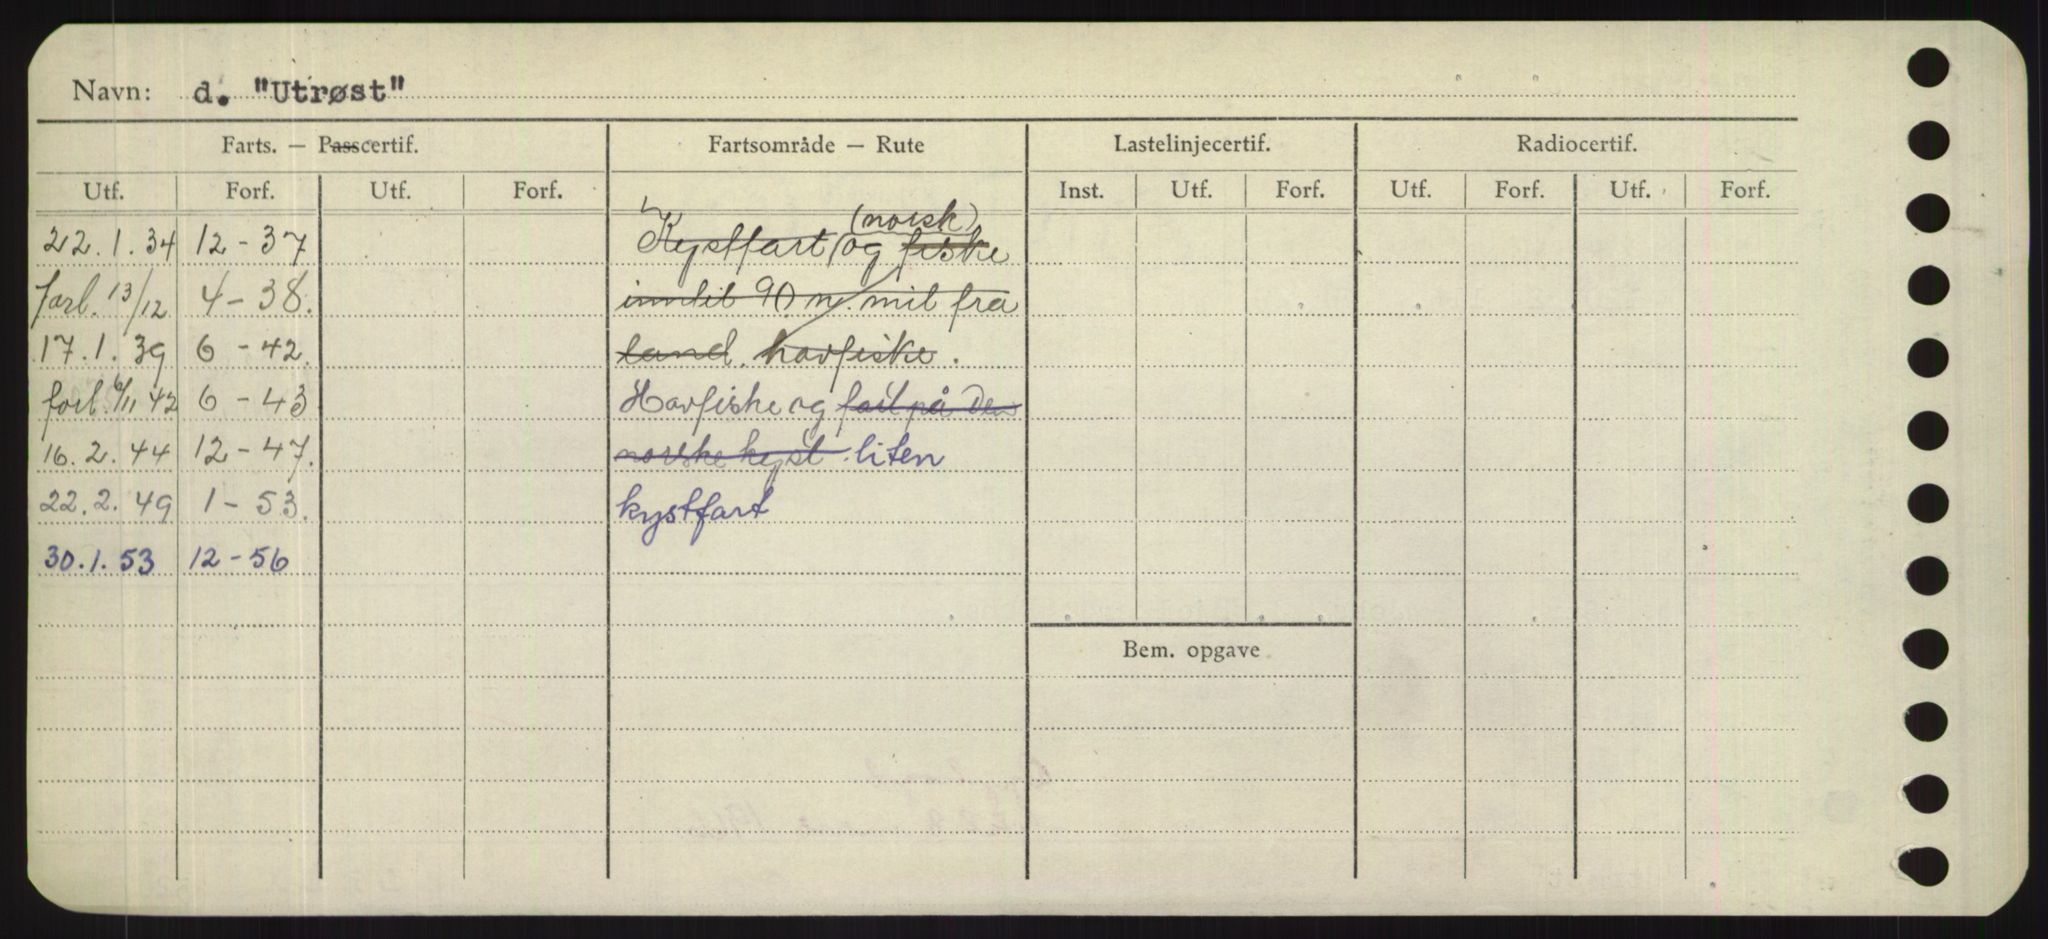 Navn: d. "Utrøst"
Farts. — Passcertif. Fartsområde — Rute Lastelinjecertif. Radiocertif.
Utf. Forf. Utf. Forf. Inst. Utf. Forf. Utf. Forf. Utf. Forf.
(norsk)
22.1.34 12-37 Kystfart og fiske
forl. 13/12 4-38. inntil 90 n. mil fra
17.1.39 6-42. land. havfiske.
forl. 6/11 42 6-43 Havfiske og fart på den
16.2.44 12-47. norske kyst liten
22.2.49 1-53. kystfart
30.1.53 12-56
Bem. opgave